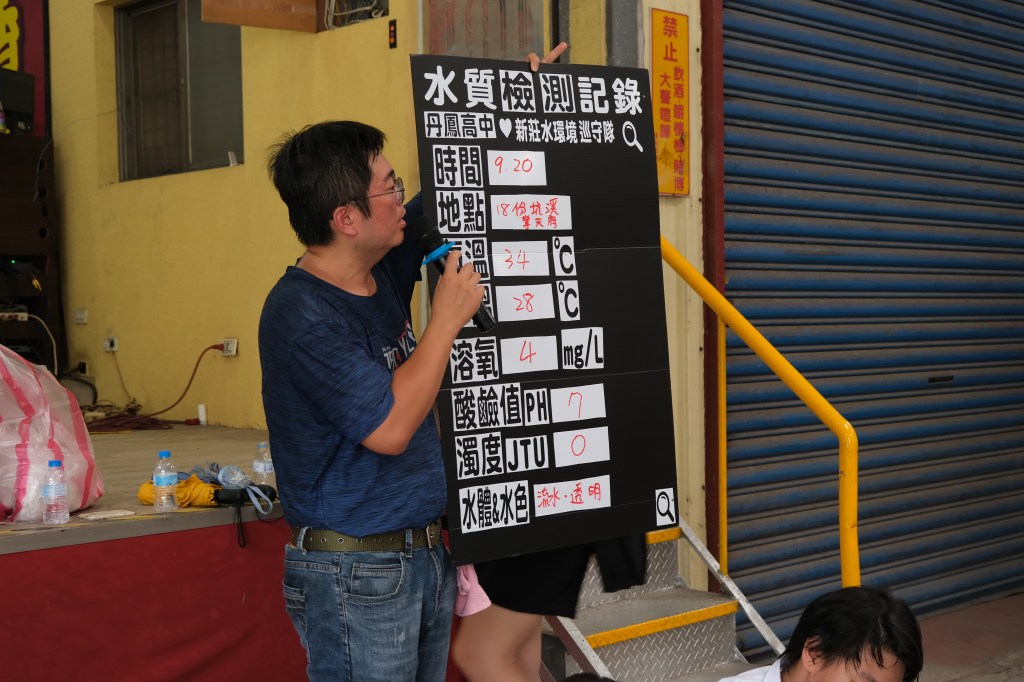 水質檢測記錄
丹鳳高中♥新莊水環境巡守隊
時間 9.20
地點 18份坑溪
擎天府
溫 34 ℃
28 ℃
溶氧 4 mg/L
酸鹼值PH 7
濁度JTU 0
水體&水色 流水·透明
禁止
飲酒·嚼檳榔·賭博
大聲喧嘩